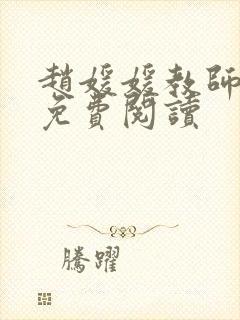 趙媛媛教師
免費閱讀
騰躍